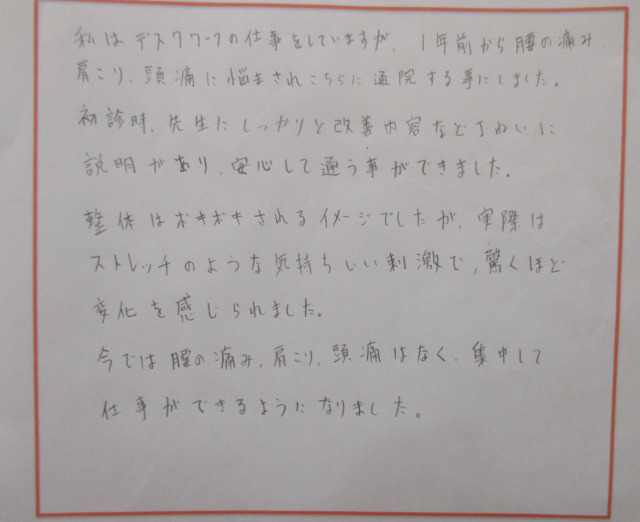 私はデスクワークの仕事をしていますが、1年前から腰の痛み、
肩こり、頭痛に悩まされこちらに通院する事にしました。
初診時、先生にしっかりと改善内容など丁ねいに
説明があり、安心して通う事ができました。
整体はボキボキされるイメージでしたが、実際は
ストレッチのような気持ちいい刺激で、驚くほど
変化を感じられました。
今では腰の痛み、肩こり、頭痛はなく、集中して
仕事ができるようになりました。